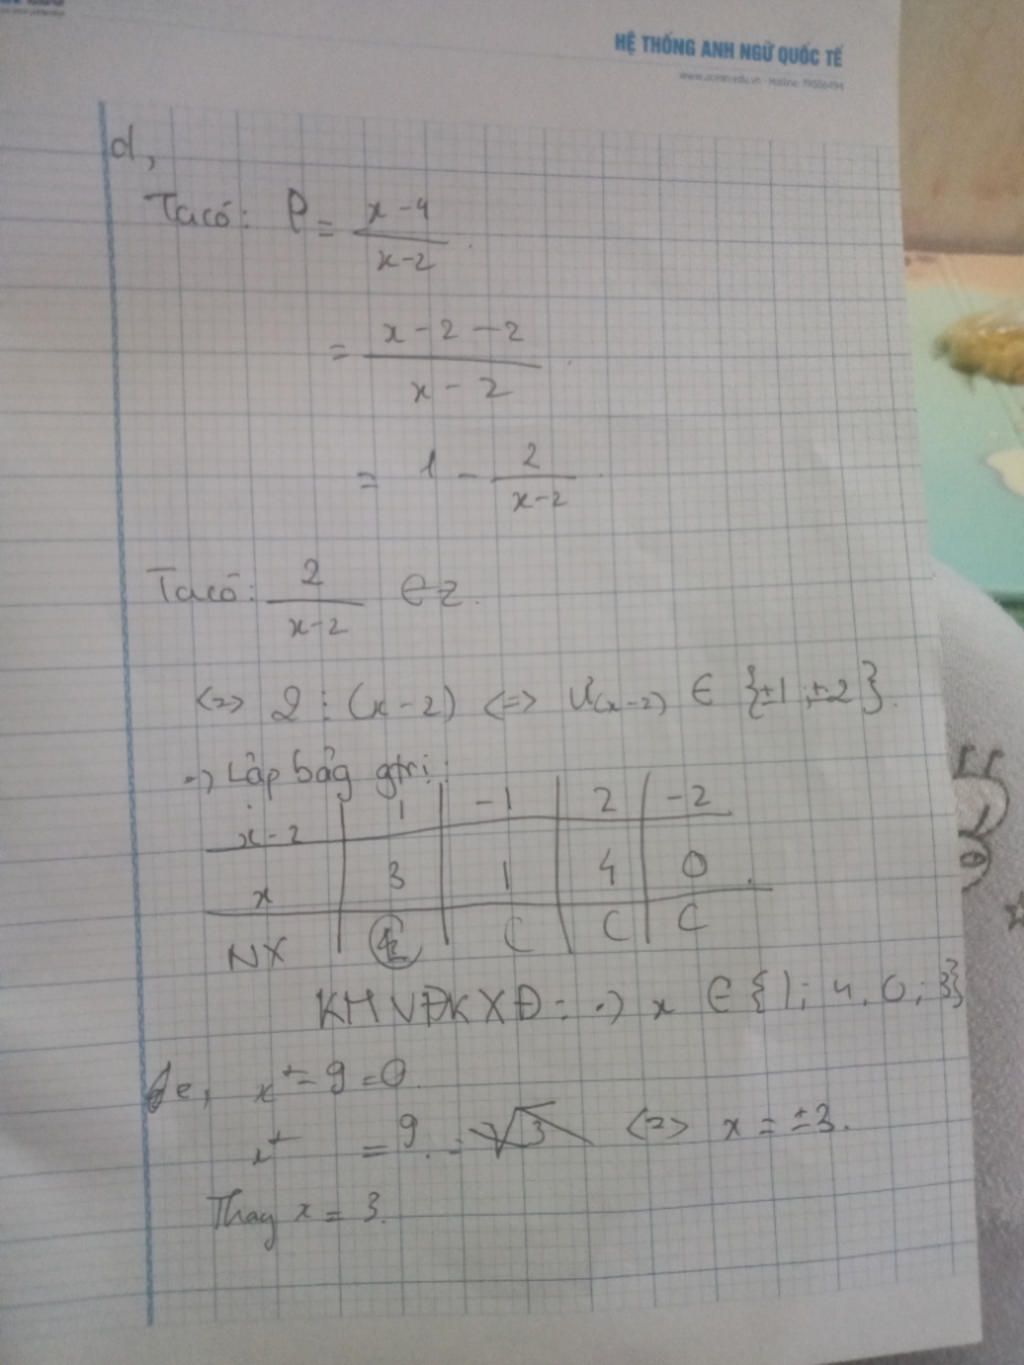 HỆ THỐNG ANH NGỮ QUỐC TẾ
d,
Ta có: P = x-4 / x-2
= x-2-2 / x-2
= 1 - 2 / x-2
Ta có: 2 / x-2 ∈ Z.
<=> 2 ⋮ (x-2) <=> Ư(x-2) ∈ {±1; ±2}.
=> Lập bảg gtrị:
x-2 | 1 | -1 | 2 | -2
x | 3 | 1 | 4 | 0
NX | C | C | C
KHVĐKXĐ: => x ∈ {1; 4, 0; 3}
e, x² - 9 = 0
x² = 9. <=> x = ±3.
Thay x = 3.